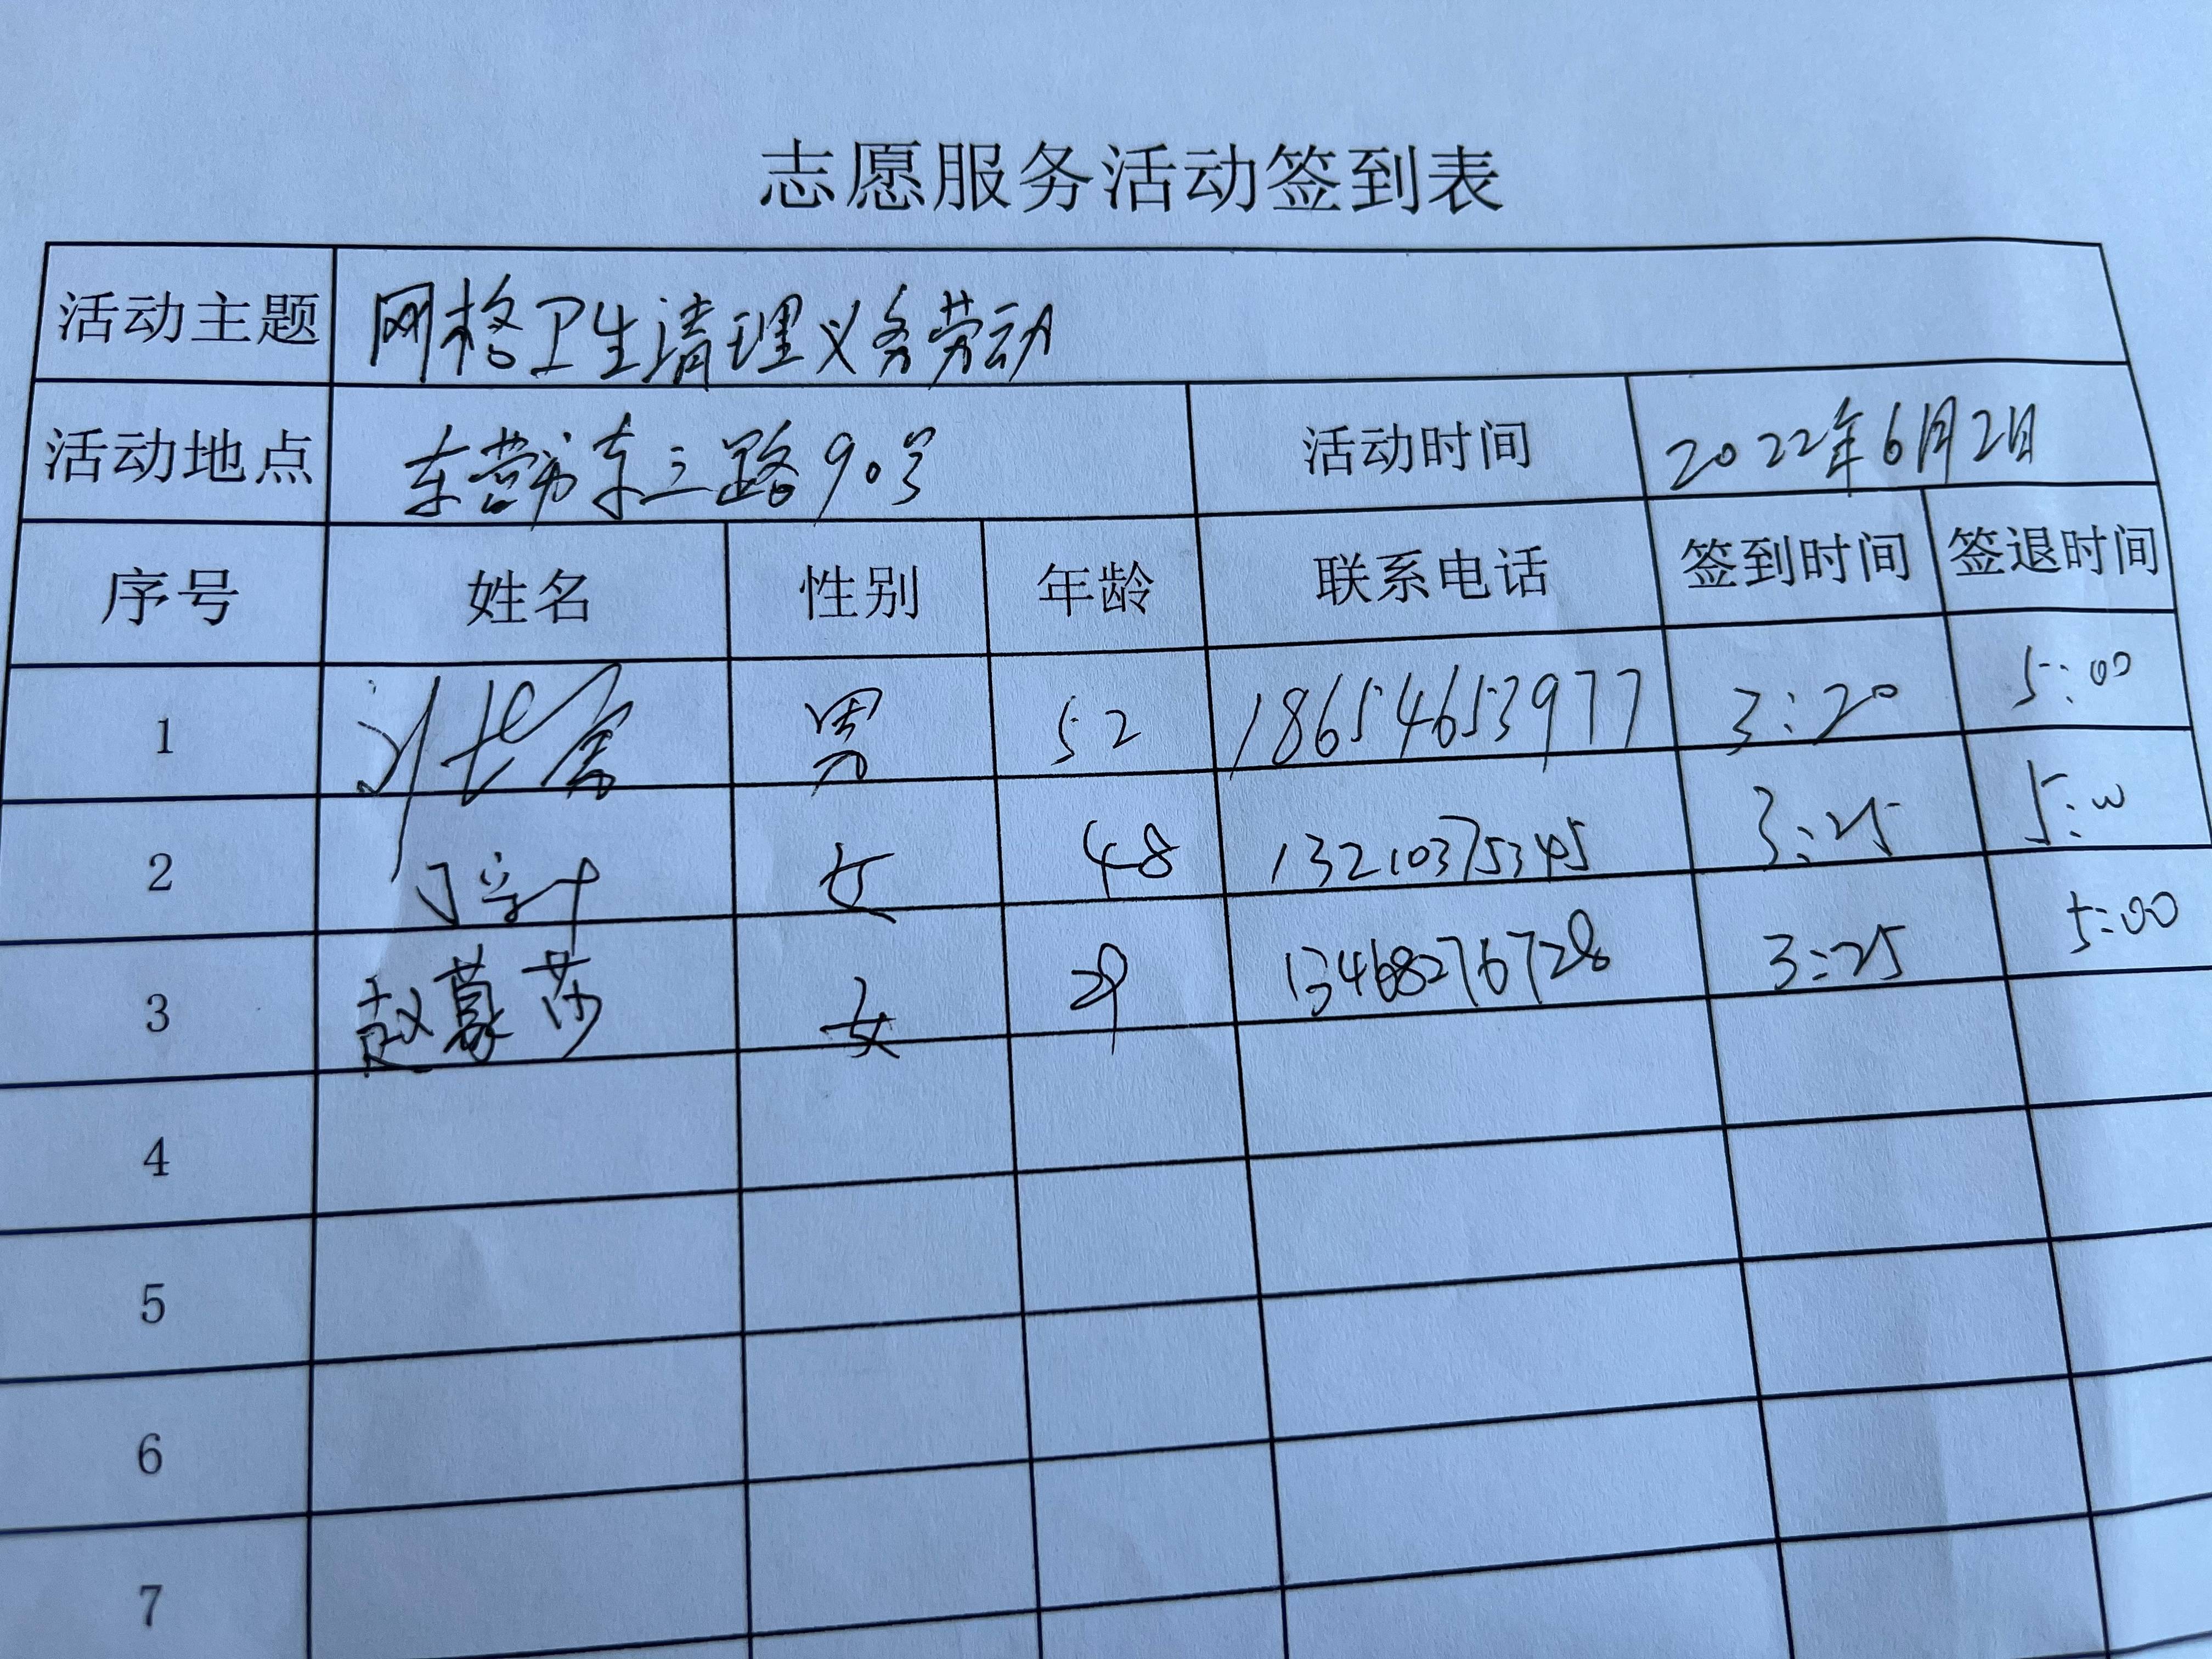 志愿服务活动签到表
活动主题 网格卫生清理义务劳动
活动地点 东营市东三路90号 活动时间 2022年6月2日
序号 姓名 性别 年龄 联系电话 签到时间 签退时间
1 男 52 18654653977 3:20 5:00
2 女 48 13210375345 3:25 5:00
3 赵慕莎 女 29 13468276728 3:25 5:00
4
5
6
7